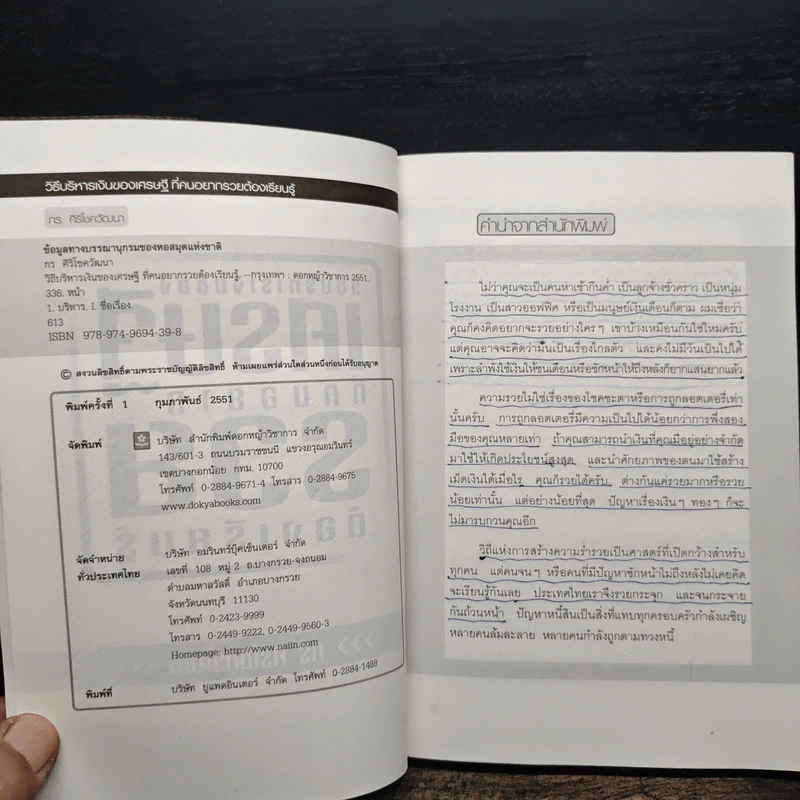 วิธีบริหารเงินของเศรษฐี ที่คนอยากรวยต้องเรียนรู้
กร ศิริโชควัฒนา
ข้อมูลทางบรรณานุกรมของหอสมุดแห่งชาติ
กร ศิริโชควัฒนา
วิธีบริหารเงินของเศรษฐี ที่คนอยากรวยต้องเรียนรู้. --กรุงเทพฯ : ดอกหญ้าวิชาการ 2551.
336. หน้า
1. บริหาร. I. ชื่อเรื่อง.
613
ISBN 978-974-9694-39-8
© สงวนลิขสิทธิ์ตามพระราชบัญญัติลิขสิทธิ์ ห้ามเผยแพร่ส่วนใดส่วนหนึ่งก่อนได้รับอนุญาต
พิมพ์ครั้งที่ 1 กุมภาพันธ์ 2551
จัดพิมพ์ บริษัท สำนักพิมพ์ดอกหญ้าวิชาการ จำกัด
143/601-3 ถนนบรมราชชนนี แขวงอรุณอมรินทร์
เขตบางกอกน้อย กทม. 10700
โทรศัพท์ 0-2884-9671-4 โทรสาร 0-2884-9675
www.dokyabooks.com
จัดจำหน่าย บริษัท อมรินทร์บุ๊คเซ็นเตอร์ จำกัด
ทั่วประเทศไทย เลขที่ 108 หมู่ 2 ถ.บางกรวย-จงถนอม
ตำบลมหาสวัสดิ์ อำเภอบางกรวย
จังหวัดนนทบุรี 11130
โทรศัพท์ 0-2423-9999
โทรสาร 0-2449-9222, 0-2449-9560-3
Homepage: http://www.naiin.com
พิมพ์ที่ บริษัท ยูแพดอินเตอร์ จำกัด โทรศัพท์ 0-2884-1488
คำนำจากสำนักพิมพ์
ไม่ว่าคุณจะเป็นคนหาเช้ากินค่ำ เป็นลูกจ้างชั่วคราว เป็นหนุ่ม
โรงงาน เป็นสาวออฟฟิศ หรือเป็นมนุษย์เงินเดือนก็ตาม ผมเชื่อว่า
คุณก็คงคิดอยากจะรวยอย่างใครๆ เขาบ้างเหมือนกันใช่ไหมครับ
แต่คุณอาจจะคิดว่ามันเป็นเรื่องไกลตัว และคงไม่มีวันเป็นไปได้
เพราะลำพังใช้เงินให้ชนเดือนหรือชักหน้าให้ถึงหลังก็ยากแสนยากแล้ว
ความรวยไม่ใช่เรื่องของโชคชะตาหรือการถูกลอตเตอรี่เท่า
นั้นครับ การถูกลอตเตอรี่มีความเป็นไปได้น้อยกว่าการพึ่งสอง
มือของคุณหลายเท่า ถ้าคุณสามารถนำเงินที่คุณมีอยู่อย่างจำกัด
มาใช้ให้เกิดประโยชน์สูงสุด และนำศักยภาพของตนมาใช้สร้าง
เม็ดเงินได้เมื่อไร คุณก็รวยได้ครับ ต่างกันแค่รวยมากหรือรวย
น้อยเท่านั้น แต่อย่างน้อยที่สุด ปัญหาเรื่องเงินๆ ทองๆ ก็จะ
ไม่มารบกวนคุณอีก
วิถีแห่งการสร้างความร่ำรวยเป็นศาสตร์ที่เปิดกว้างสำหรับ
ทุกคน แต่คนจนๆ หรือคนที่มีปัญหาชักหน้าไม่ถึงหลังไม่เคยคิด
จะเรียนรู้กันเลย ประเทศไทยเราจึงรวยกระจุก และจนกระจาย
กันถ้วนหน้า ปัญหาหนี้สินเป็นสิ่งที่แทบทุกครอบครัวกำลังเผชิญ
หลายคนล้มละลาย หลายคนกำลังถูกตามทวงหนี้